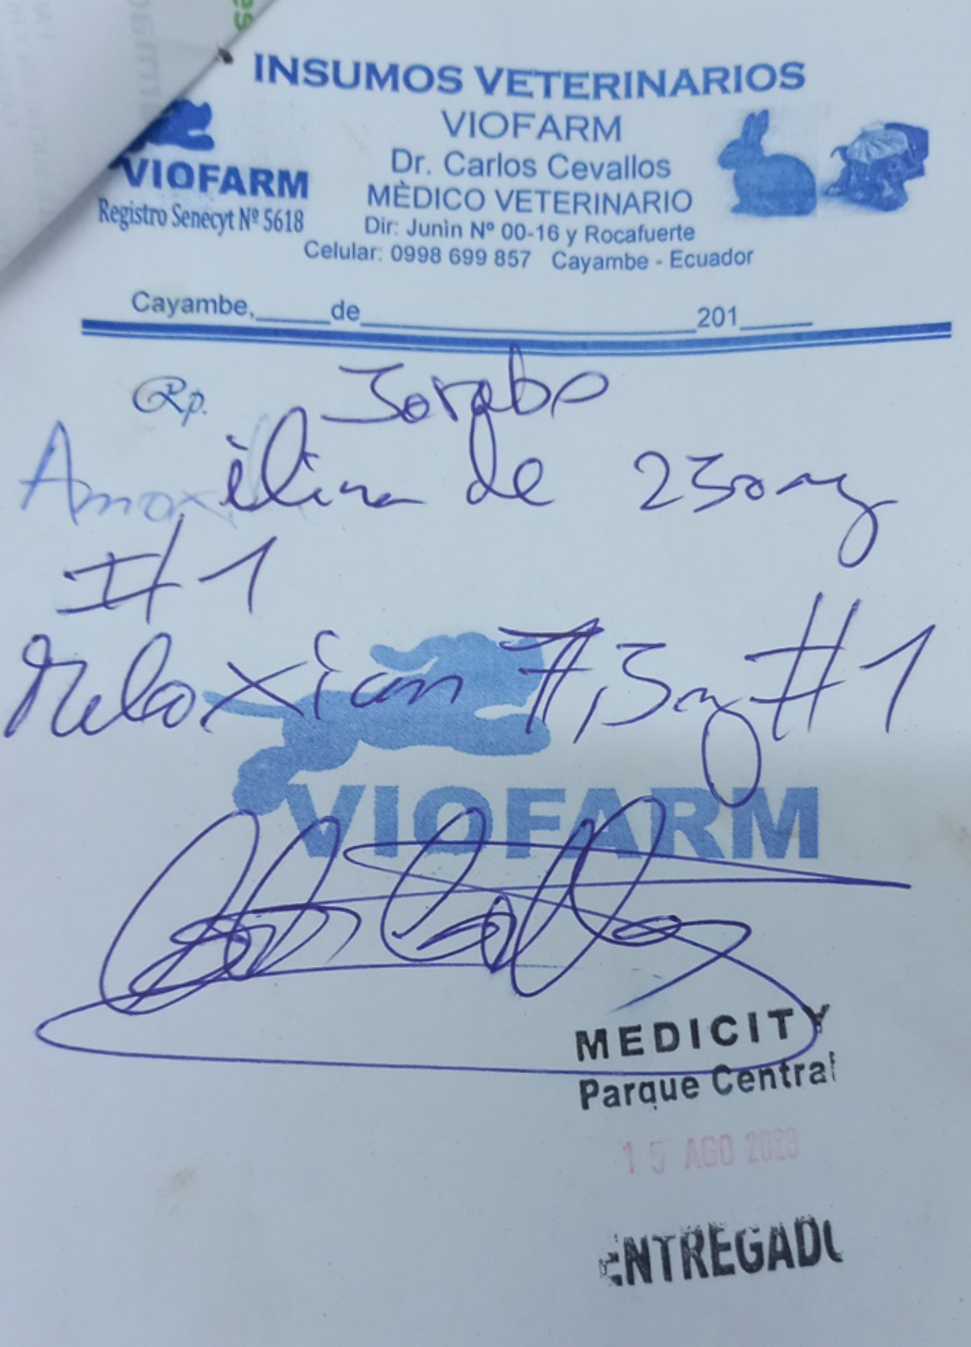 es
INSUMOS VETERINARIOS
VIOFARM
Dr. Carlos Cevallos
MÈDICO VETERINARIO
Dir: Junin Nº 00-16 y Rocafuerte
Celular: 0998 699 857 Cayambe - Ecuador
VIOFARM
Registro Senecyt Nº 5618
Cayambe,_____de_______________________201_____
Rp.
Jarabe
Amoxilina de 250mg
#1
Meloxican 7,5mg #1
VIOFARM
MEDICITY
Parque Central
15 AGO
ENTREGADO